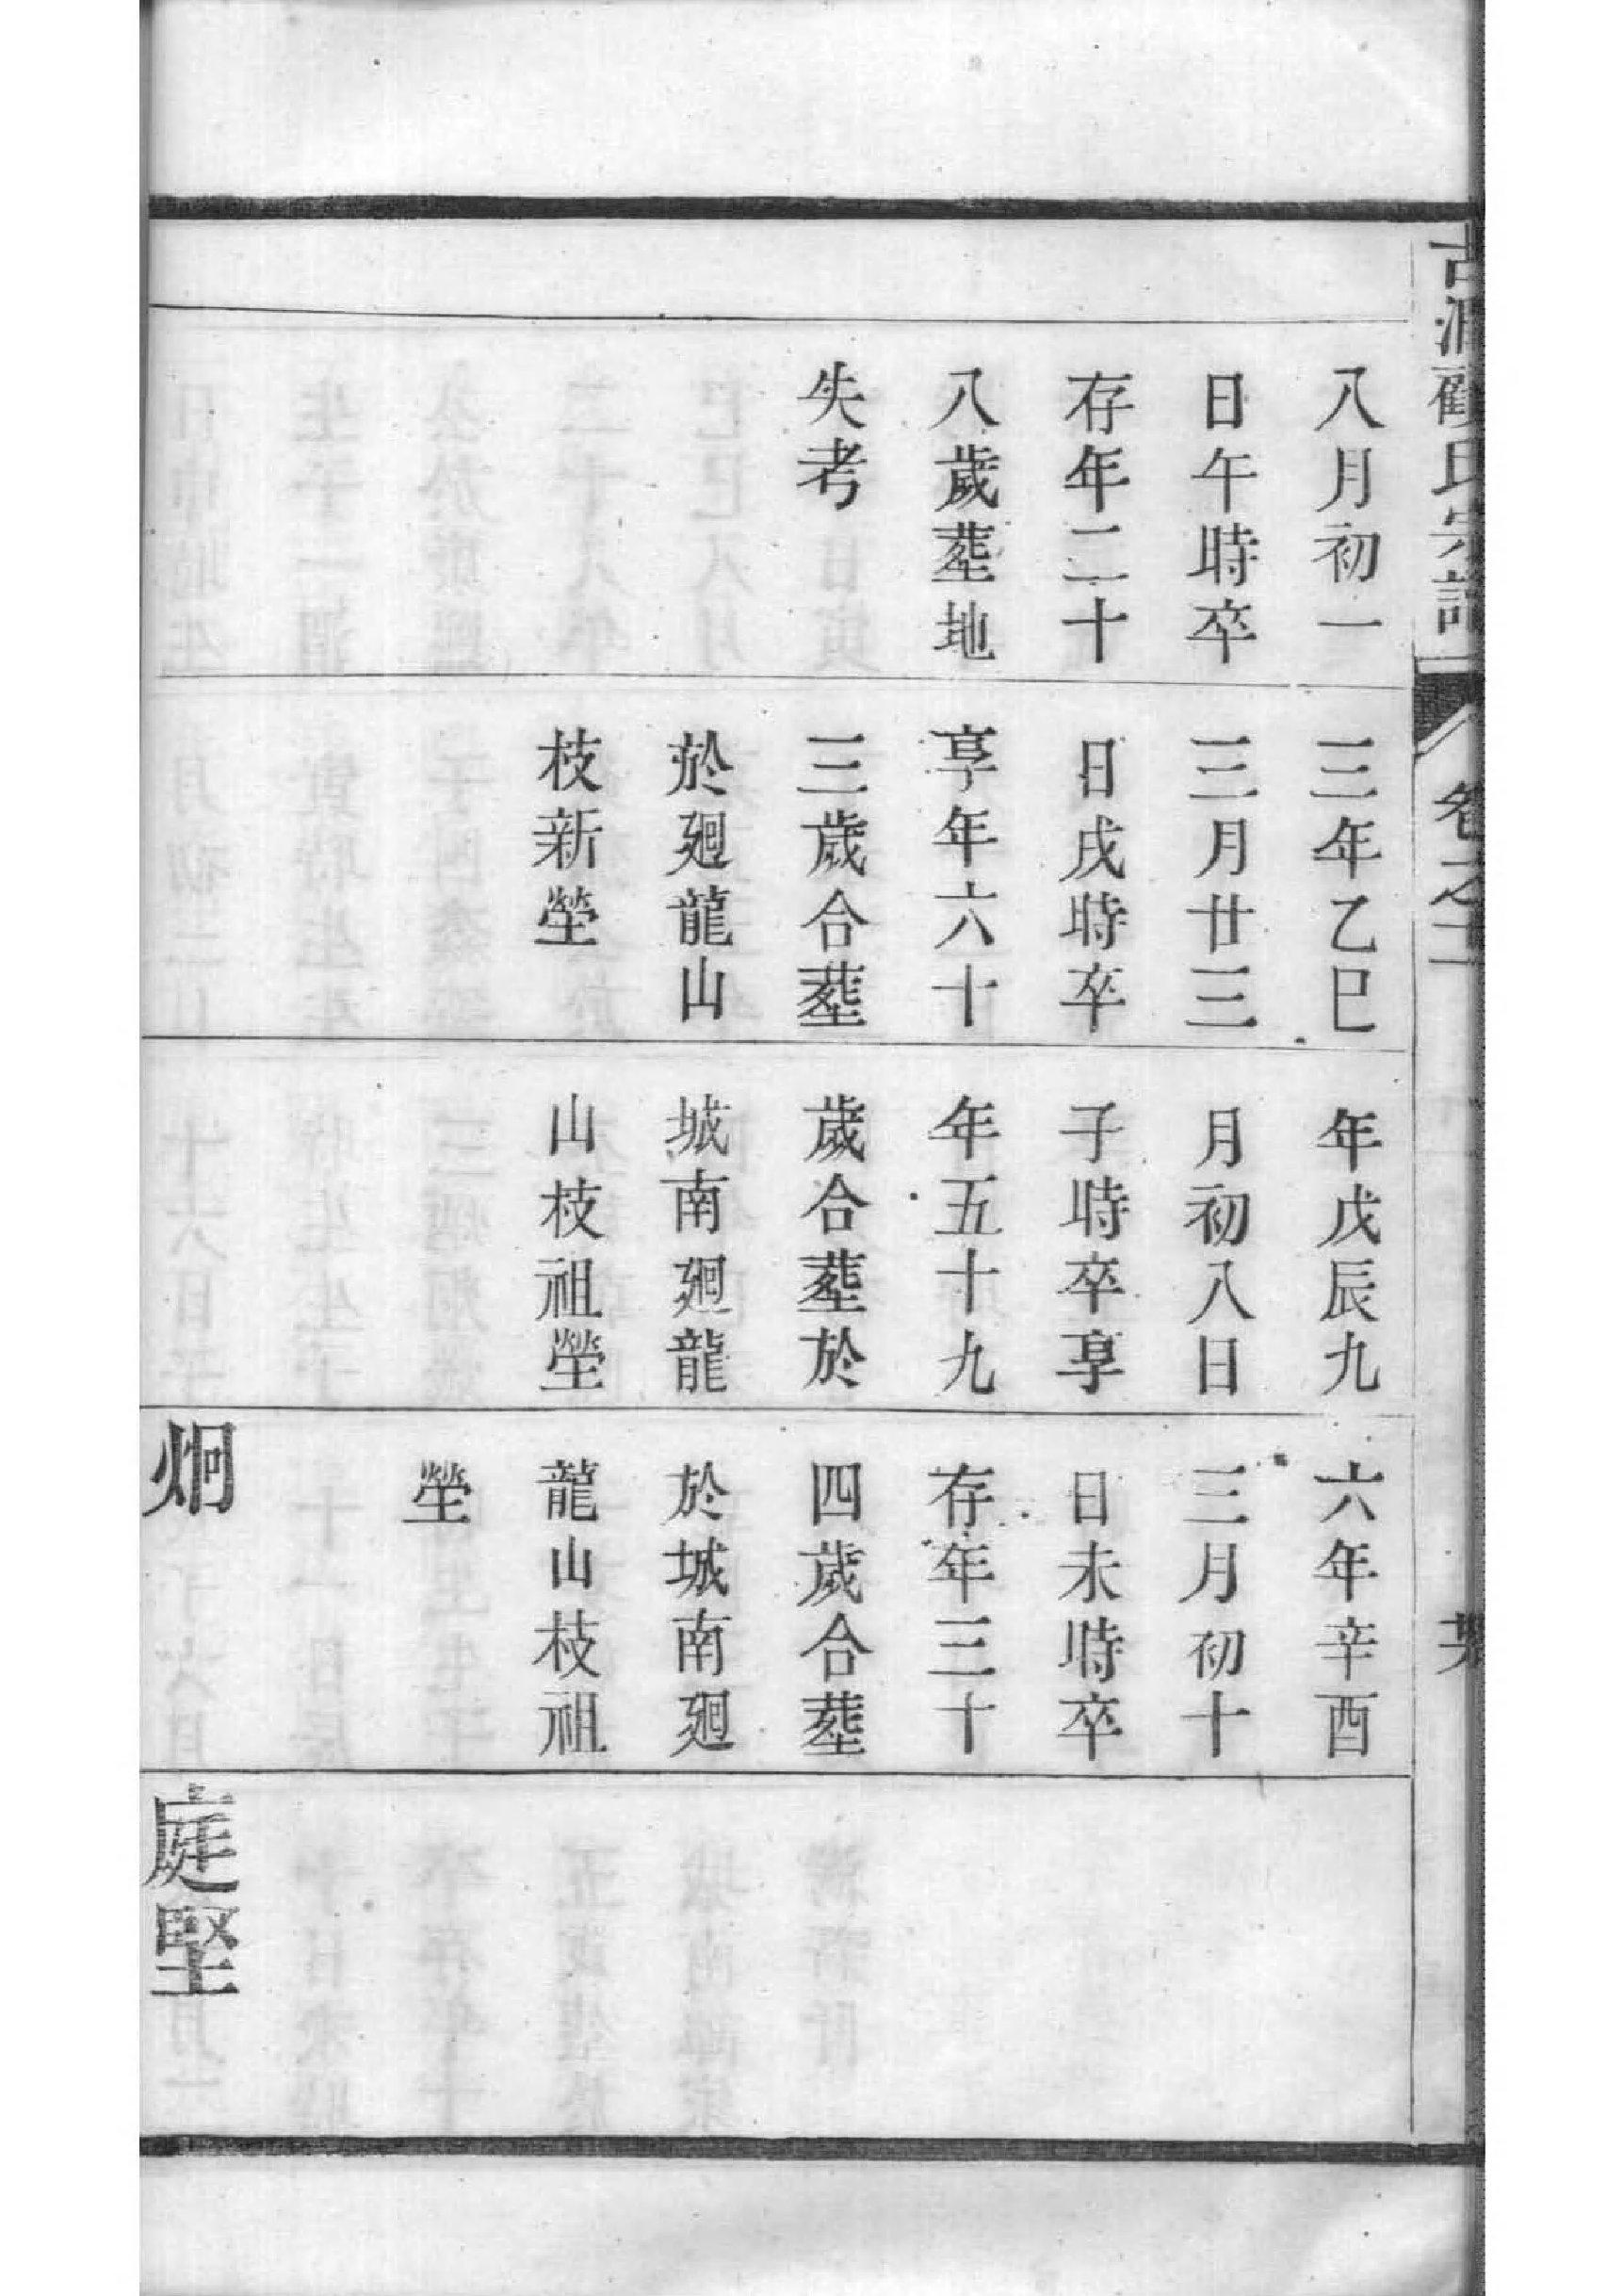 古潤
氏宗譜
卷之
八月初一
日午時卒
存年二十
八歲塟地
失考
三年乙巳
三月廿三
日戌時卒
享年六十
三歲合塟
於廻龍山
枝新塋
年戊辰九
月初八日
子時卒享
年五十九
歲合塟於
城南廻龍
山枝祖塋
六年辛酉
三月初十
日未時卒
存年三十
四歲合塟
於城南廻
龍山枝祖
塋
炯
庭堅